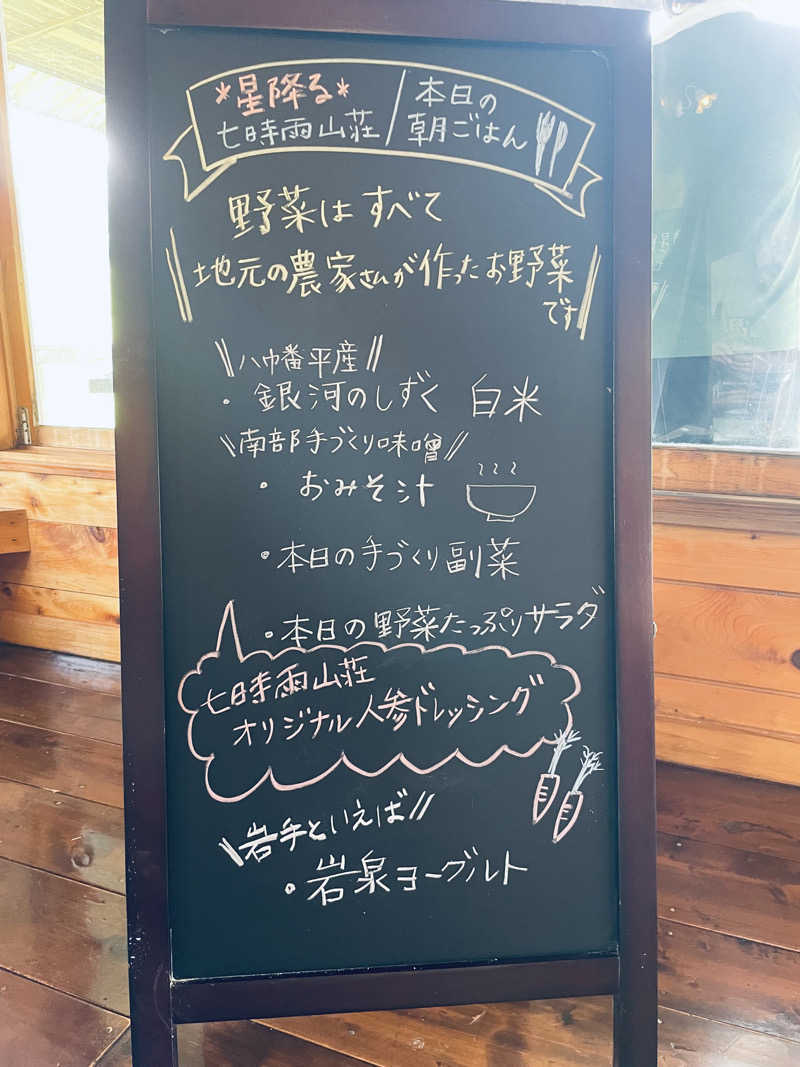 *星降る*
七時雨山荘 / 本日の
朝ごはん
野菜は すべて
地元の農家さんが作ったお野菜
です
八幡平産
・銀河のしずく 白米
南部手づくり味噌
・おみそ汁
・本日の手づくり副菜
・本日の野菜たっぷりサラダ
七時雨山荘
オリジナル人参ドレッシング
岩手といえば
・岩泉ヨーグルト